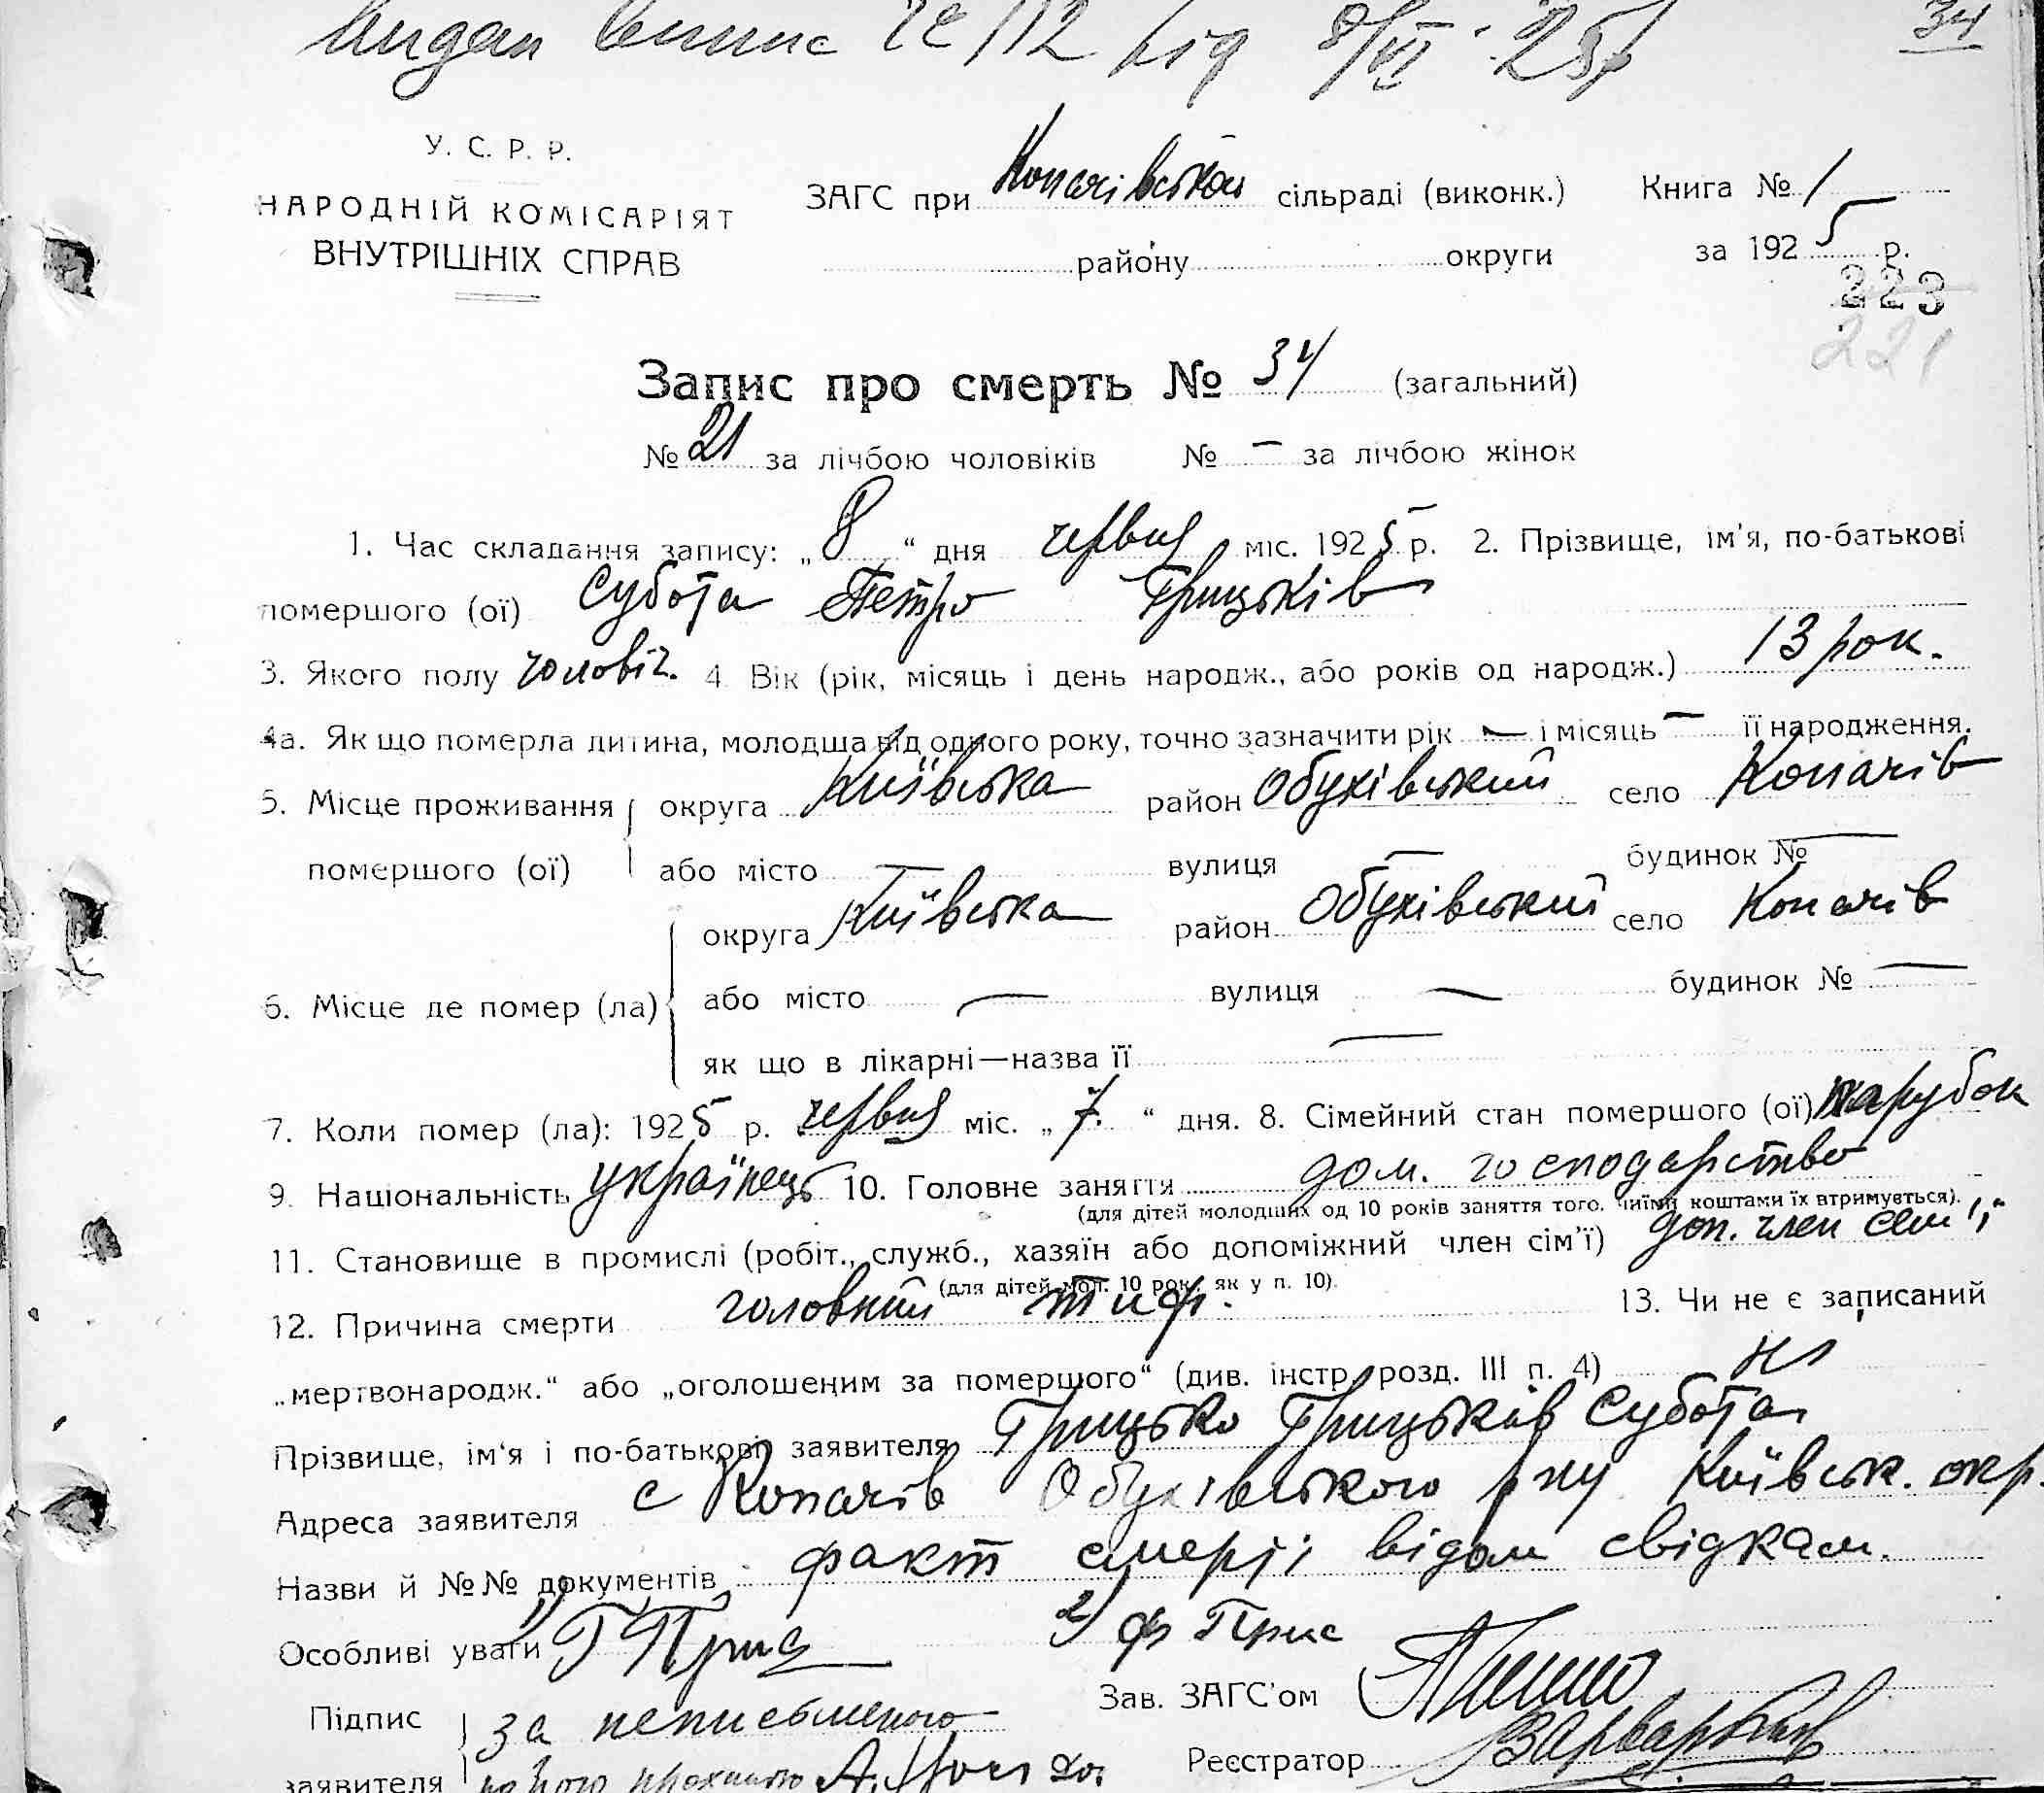 видан випис № 12 від 8/VI 25 р
34
У. С. Р. Р.
НАРОДНІЙ КОМІСАРІЯТ
ВНУТРІШНІХ СПРАВ
ЗАГС при Копачівській сільраді (виконк.) Книга № 1
району округи за 1925 р.
223
221
Запис про смерть № 34 (загальний)
№ 21 за лічбою чоловіків № — за лічбою жінок
1. Час складання запису: „8“ дня червня міс. 1925 р. 2. Прізвище, ім'я, по-батькові
помершого (ої) Субота Петро Грицьків
3. Якого полу чоловіч. 4. Вік (рік, місяць і день народж., або років од народж.) 13 рок.
4а. Як що померла дитина, молодша від одного року, точно зазначити рік — і місяць — її народження.
5. Місце проживання округа Київська район Обухівський село Копачів
помершого (ої) або місто — вулиця — будинок № —
округа Київська район Обухівський село Копачів
6. Місце де помер (ла) або місто — вулиця — будинок № —
як що в лікарні—назва її —
7. Коли помер (ла): 1925 р. червня міс. „7“ дня. 8. Сімейний стан помершого (ої) парубок
9. Національність українець 10. Головне заняття дом. господарство
(для дітей молодших од 10 років заняття того, чиїми коштами їх втримується).
11. Становище в промислі (робіт., служб., хазяїн або допоміжний член сім'ї) доп. член сем'ї
(для дітей мол. 10 рок. як у п. 10).
12. Причина смерти головний тиф. 13. Чи не є записаний
„мертвонародж.“ або „оголошеним за помершого“ (див. інстр. розд. III п. 4) ні
Прізвище, ім'я і по-батькові заявителя Грицько Грицьків Субота
Адреса заявителя с Копачів Обухівського р ну Київськ. окр.
Назви й №№ документів факт смерті відом свідкам.
Особливі уваги 1) Г Приз 2) ф Прис
Підпис за неписьменого Зав. ЗАГС'ом
заявителя на його прохання А. Реєстратор